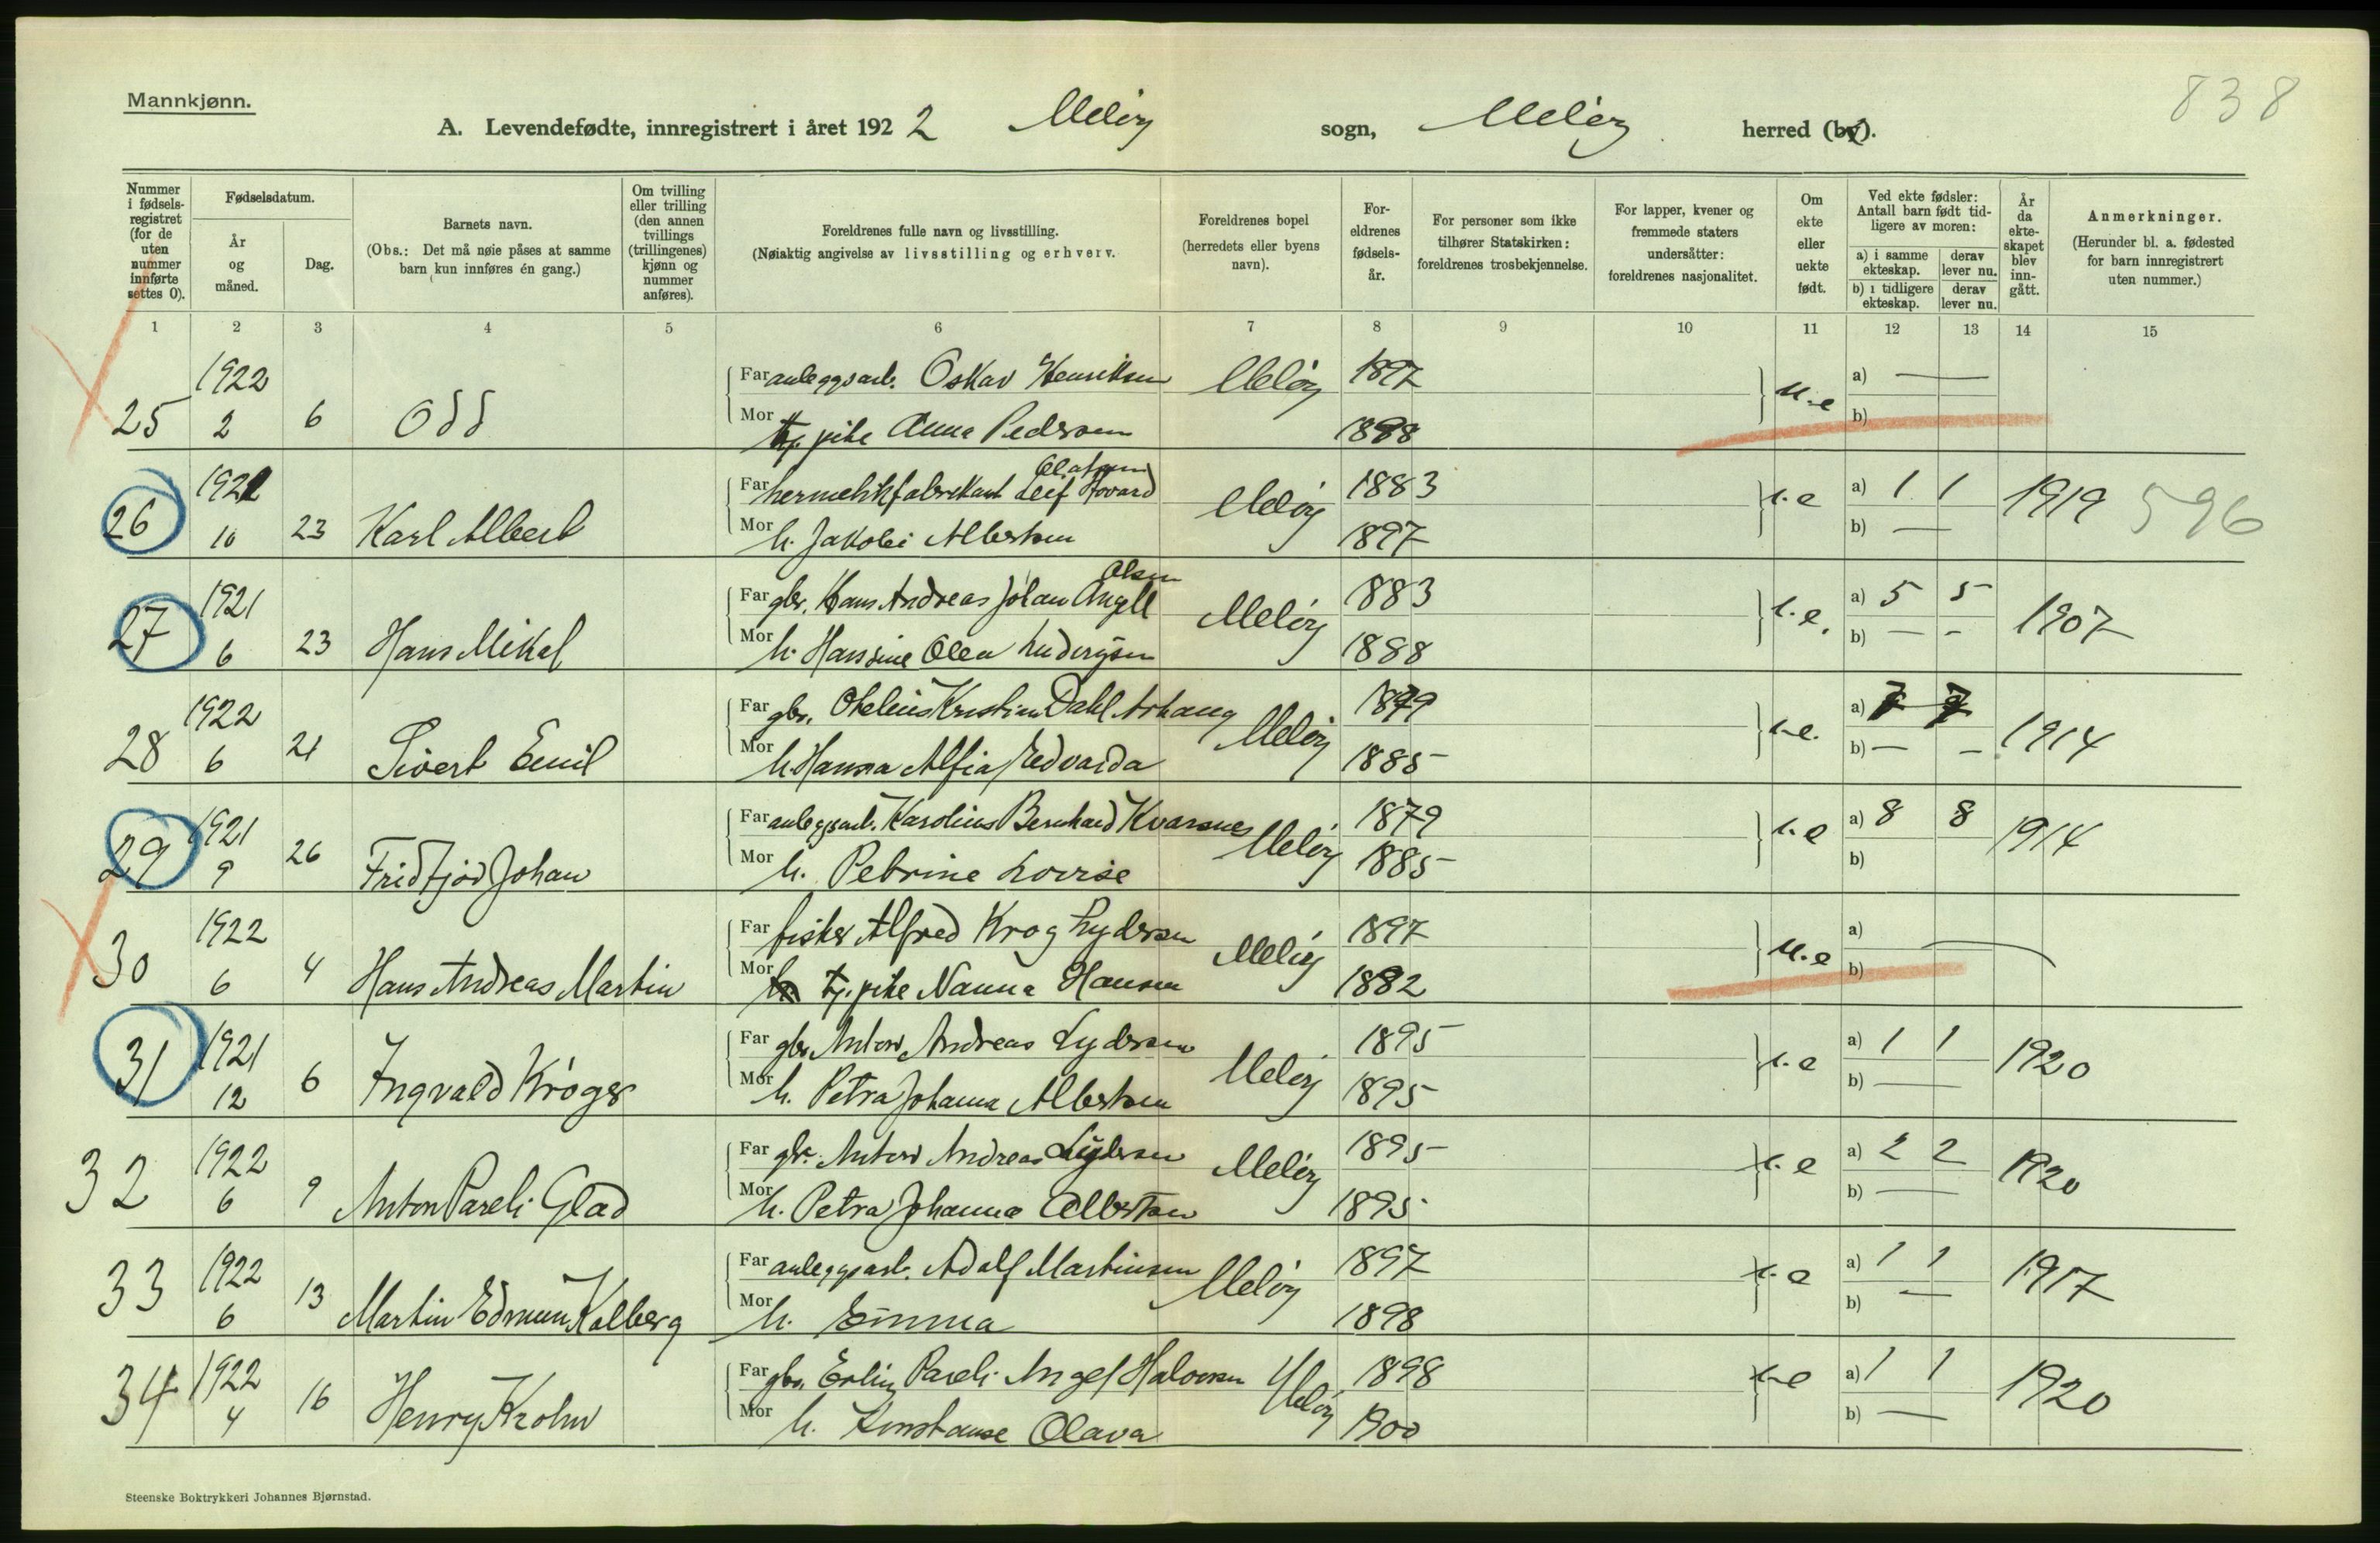 838
Mannkjønn.
A. Levendefødte, innregistrert i året 1922 Meløy sogn, Meløy herred (by).
Nummer i fødsels-registret (for de uten nummer innførte settes 0).
Fødselsdatum.
År og måned.
Dag.
Barnets navn.
(Obs.: Det må nøie påses at samme barn kun innføres én gang.)
Om tvilling eller trilling (den annen tvillings (trillingenes) kjønn og nummer anføres).
Foreldrenes fulle navn og livsstilling.
(Nøiaktig angivelse av livsstilling og erhverv.
Foreldrenes bopel (herredets eller byens navn).
For-eldrenes fødsels-år.
For personer som ikke tilhører Statskirken: foreldrenes trosbekjennelse.
For lapper, kvener og fremmede staters undersåtter: foreldrenes nasjonalitet.
Om ekte eller uekte født.
Ved ekte fødsler: Antall barn født tid-ligere av moren:
a) i samme ekteskap. derav lever nu.
b) i tidligere ekteskap. derav lever nu.
År da ekte-skapet blev inn-gått.
Anmerkninger.
(Herunder bl. a. fødested for barn innregistrert uten nummer.)
1 2 3 4 5 6 7 8 9 10 11 12 13 14 15
1922 Far anleggsarb. Oskar Henriksen Meløy 1897 a) —
25 2 6 Odd Mor tj. pike Anna Pedersen 1898 u.e b)
Olafsen
1921 Far hermetikfabrikant Leif Hovard Meløy 1883 e a) 1 1 1919 596
26 10 23 Karl Albert Mor h. Jakobi Albertsen 1897 b) —
Olsen
1921 Far gbr. Hans Andreas Johan Angell Meløy 1883 e. a) 5 5 1907
27 6 23 Hans Mikal Mor h. Hansine Olea 1888 b) — -
1922 Far gbr. Otelius Kristian Dahl Meløy 1879 e. a) 7 7 1914
28 6 21 Sivert Emil Mor h. Hanna Alfia Edvarda 1885 b) — -
1921 Far anleggsarb. Karolius Bernhard Kvarsnes Meløy 1879 e a) 8 8 1914
29 9 26 Fridtjov Johan Mor h. Petrine Lovise 1885 b)
1922 Far fisker Alfred Krog Lydersen Meløy 1897 u.e a) —
30 6 4 Hans Andreas Martin Mor tj. pike Nanna Hansen 1882 b)
1921 Far gbr Anton Andreas Lydersen Meløy 1895 e a) 1 1 1920
31 12 6 Ingvald Krøger Mor h. Petra Johanna Albertsen 1895 b) —
1922 Far gbr. Anton Andreas Lydersen Meløy 1895 e a) 2 2 1920
32 6 9 Anton Pareli Glad Mor h. Petra Johanna Albertsen 1895 b) —
1922 Far anleggsarb. Adolf Martinsen Meløy 1897 e a) 1 1 1917
33 6 13 Martin Edmun Kalberg Mor h. Emma 1898 b) —
1922 Far gbr. Erling Pareli Angel Halvorsen Meløy 1898 e a) 1 1 1920
34 4 16 Henry Krohn Mor h. Konstanse Olava 1900 b) —
Steenske Boktrykkeri Johannes Bjørnstad.